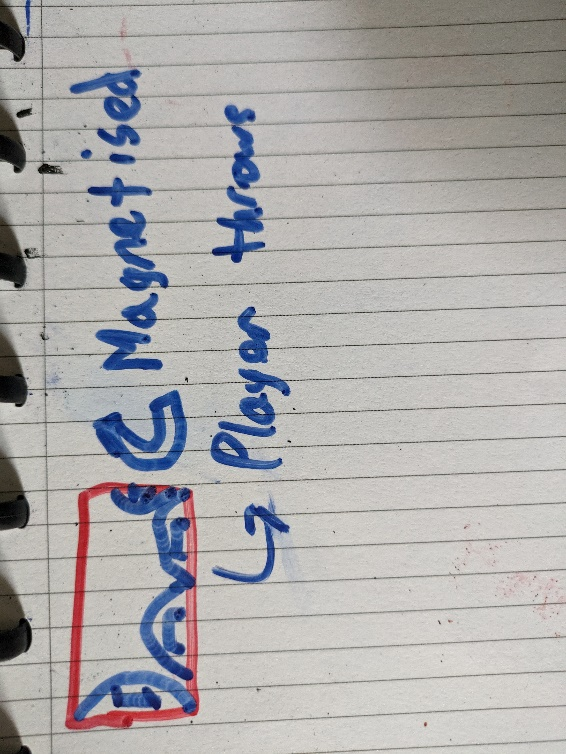 Magnetised
↳ Player throws